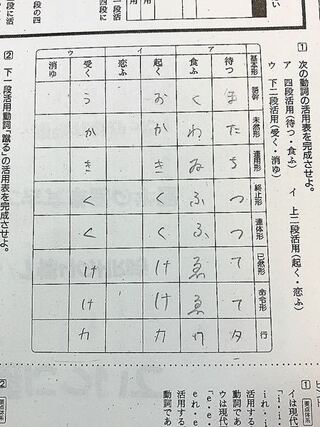 1 次の動詞の活用表を完成させよ。
ア 四段活用(待つ・食ふ) イ 上二段活用(起く・恋ふ)
ウ 下二段活用(受く・消ゆ)
基本形 語幹 未然形 連用形 終止形 連体形 已然形 命令形 行
ア
待つ ま た ち つ つ て て タ
食ふ く わ ゐ ふ ふ ゑ ゑ ワ
イ
起く お か き く く け け カ
恋ふ
ウ
受く う か き く く け け カ
消ゆ
2 下一段活用動詞「蹴る」の活用表を完成させよ。
1
イは現代
活用する
動詞であ
ウは現代
活用する
動詞であ
2